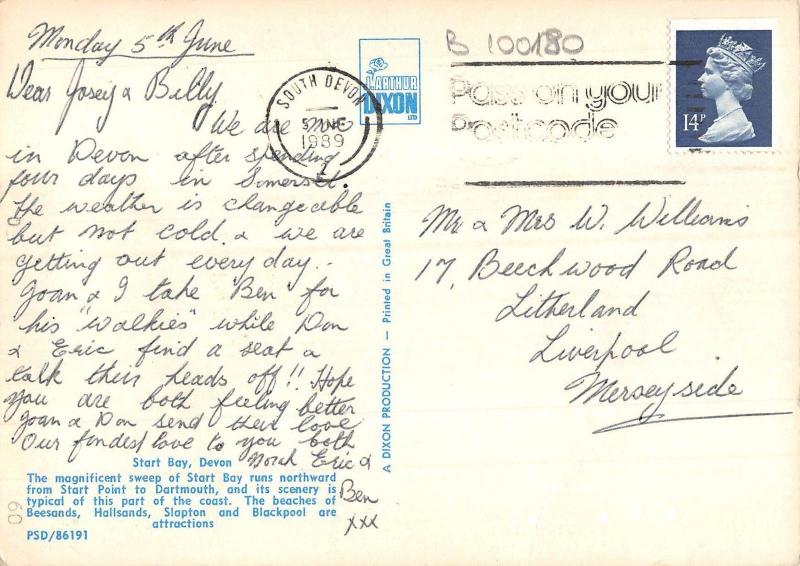 Monday 5th June
Dear Josey & Billy
We are now
in Devon after spending
four days in Somerset.
The weather is changeable
but not cold & we are
getting out every day..
Joan & I take Ben for
his "walkies" while Don
& Eric find a seat &
talk their heads off!! Hope
you are both feeling better
Joan & Don send their love
Our fondest love to you both
Norah Eric &
Ben
xxx
Start Bay, Devon
The magnificent sweep of Start Bay runs northward
from Start Point to Dartmouth, and its scenery is
typical of this part of the coast. The beaches of
Beesands, Hallsands, Slapton and Blackpool are
attractions
PSD/86191
09
J. ARTHUR
DIXON
LTD
A DIXON PRODUCTION — Printed in Great Britain
SOUTH DEVON
5 JNE
1989
B 100180
Pass on your
Postcode
14P
Mr & Mrs W. Williams
17, Beechwood Road
Litherland
Liverpool
Merseyside